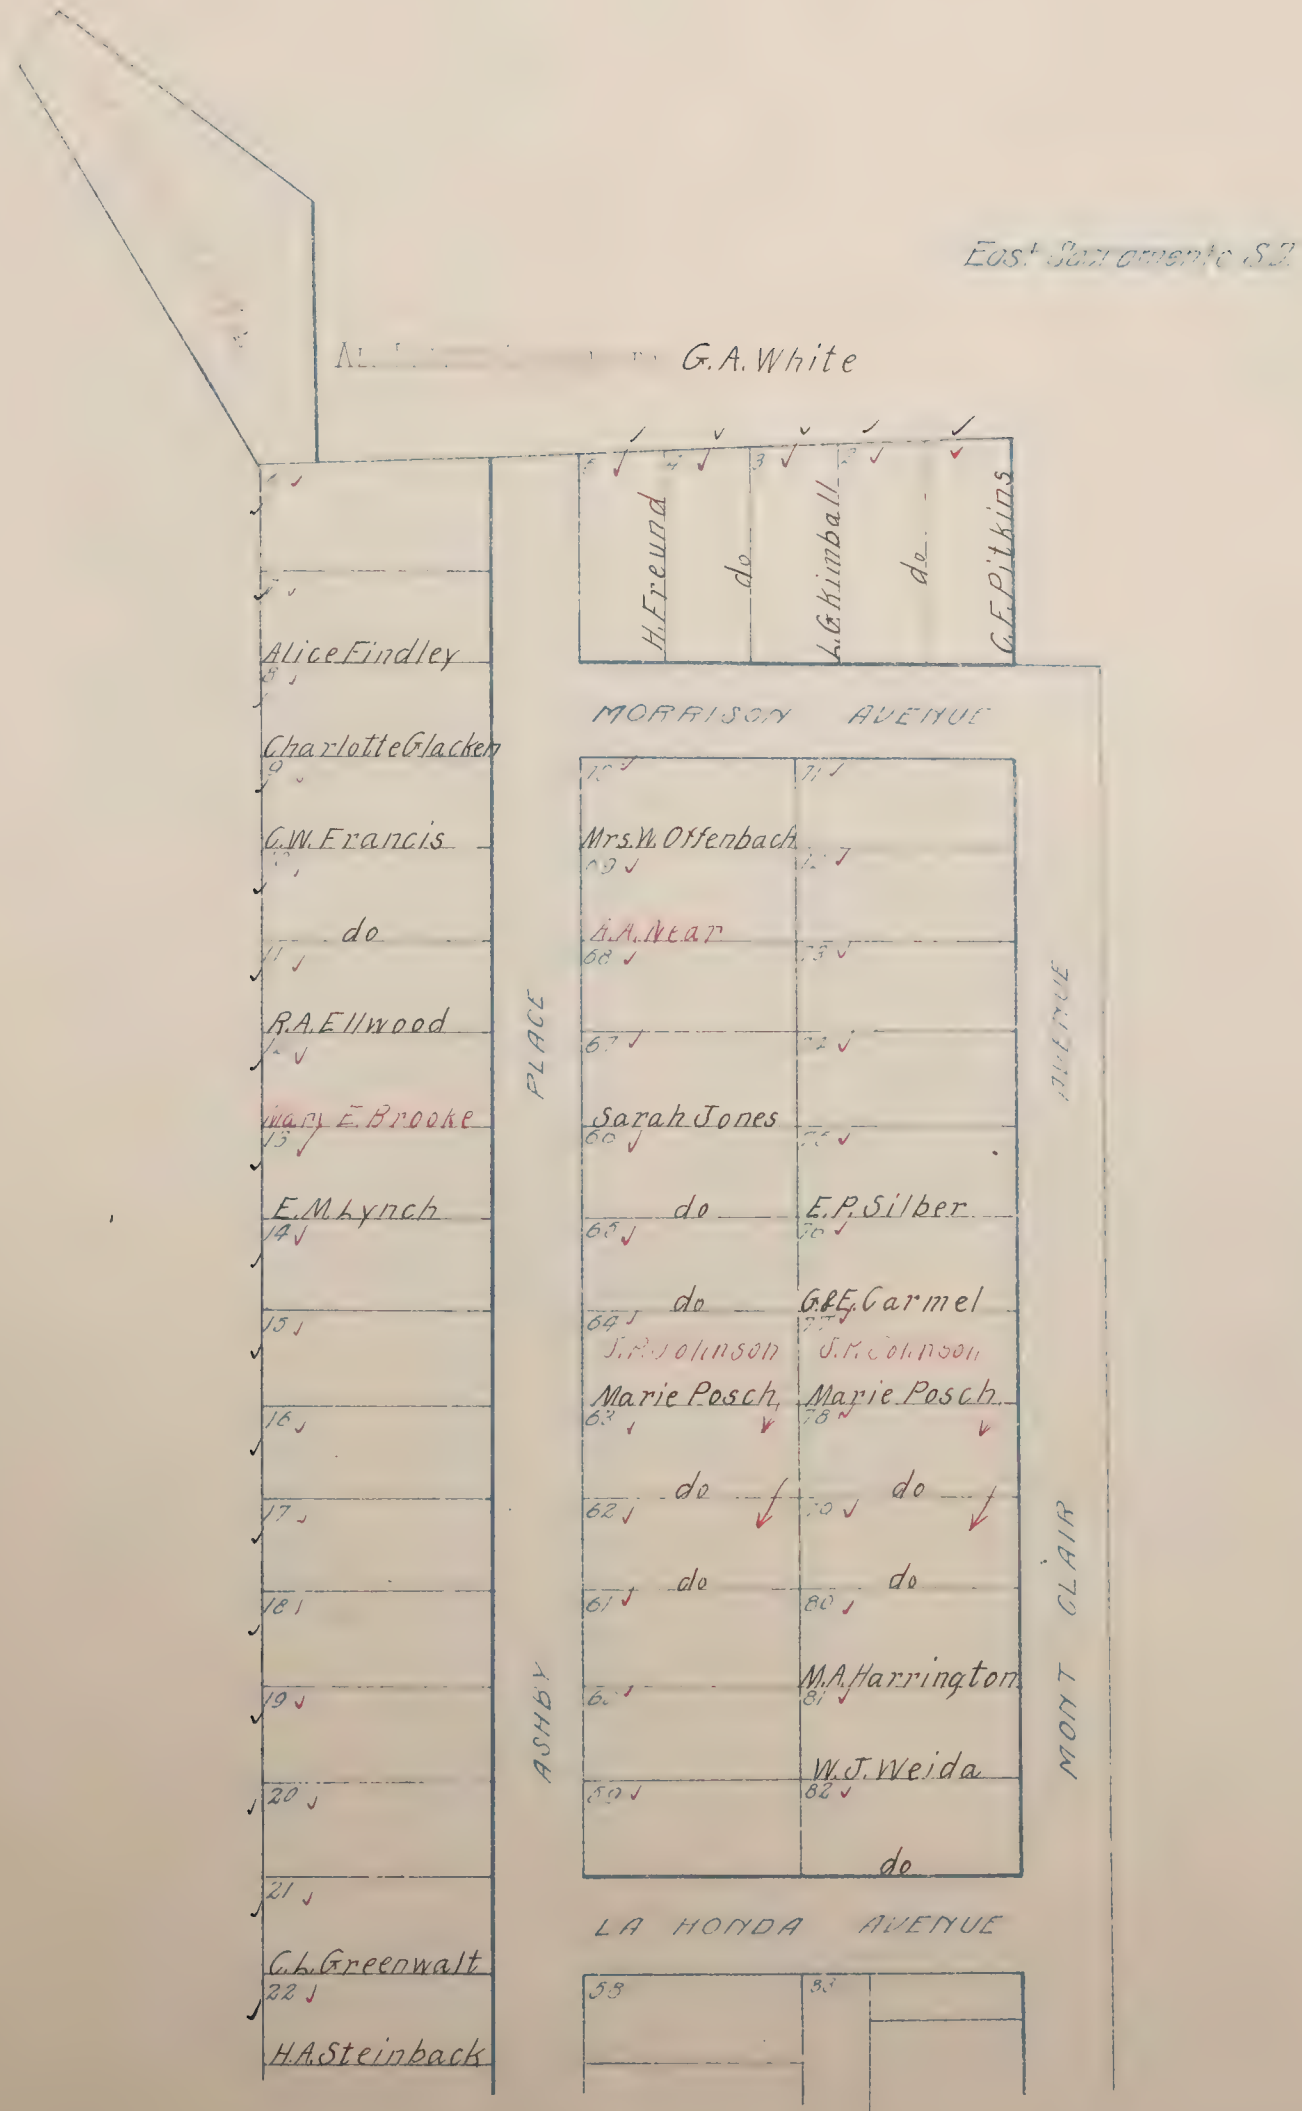 East Sacramento S.D.
G.A. White
5 4 3 2
H. Freund
do
L.G. Kimball
do
C.F. Pitkins
MORRISON AVENUE
Alice Findley
8
Charlotte Glacken
9
C.W. Francis
do
11
R.A. Ellwood
Mary E. Brooke
13
E.M. Lynch
14
15
16
17
18
19
20
21
C.L. Greenwalt
22
H.A. Steinback
ASHBY PLACE
70
Mrs. W. Offenbach
69
A.A. Near
68
67
Sarah Jones
66
do
65
do
64
J.P. Johnson
Marie Posch
63
do
62
do
61
60
59
71
72
73
74
75
E.P. Silber
76
G.&E. Carmel
77
J.P. Johnson
Marie Posch
78
do
79
do
80
M.A. Harrington
81
W.J. Weida
82
do
MONT CLAIR AVENUE
LA HONDA AVENUE
58
83